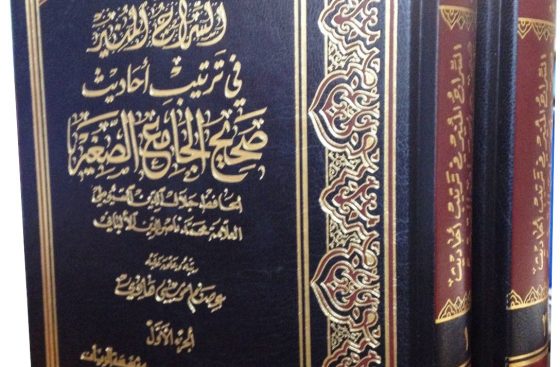 السراج المنير
في ترتيب أحاديث
صحيح الجامع الصغير
للحافظ جلال الدين السيوطي
العلامة محمد ناصر الدين الألباني
رتبه وعلق عليه
عصام موسى هادي
الجزء الأول
السراج المنير في ترتيب أحاديث
السراج المنير في ترتيب أحاديث